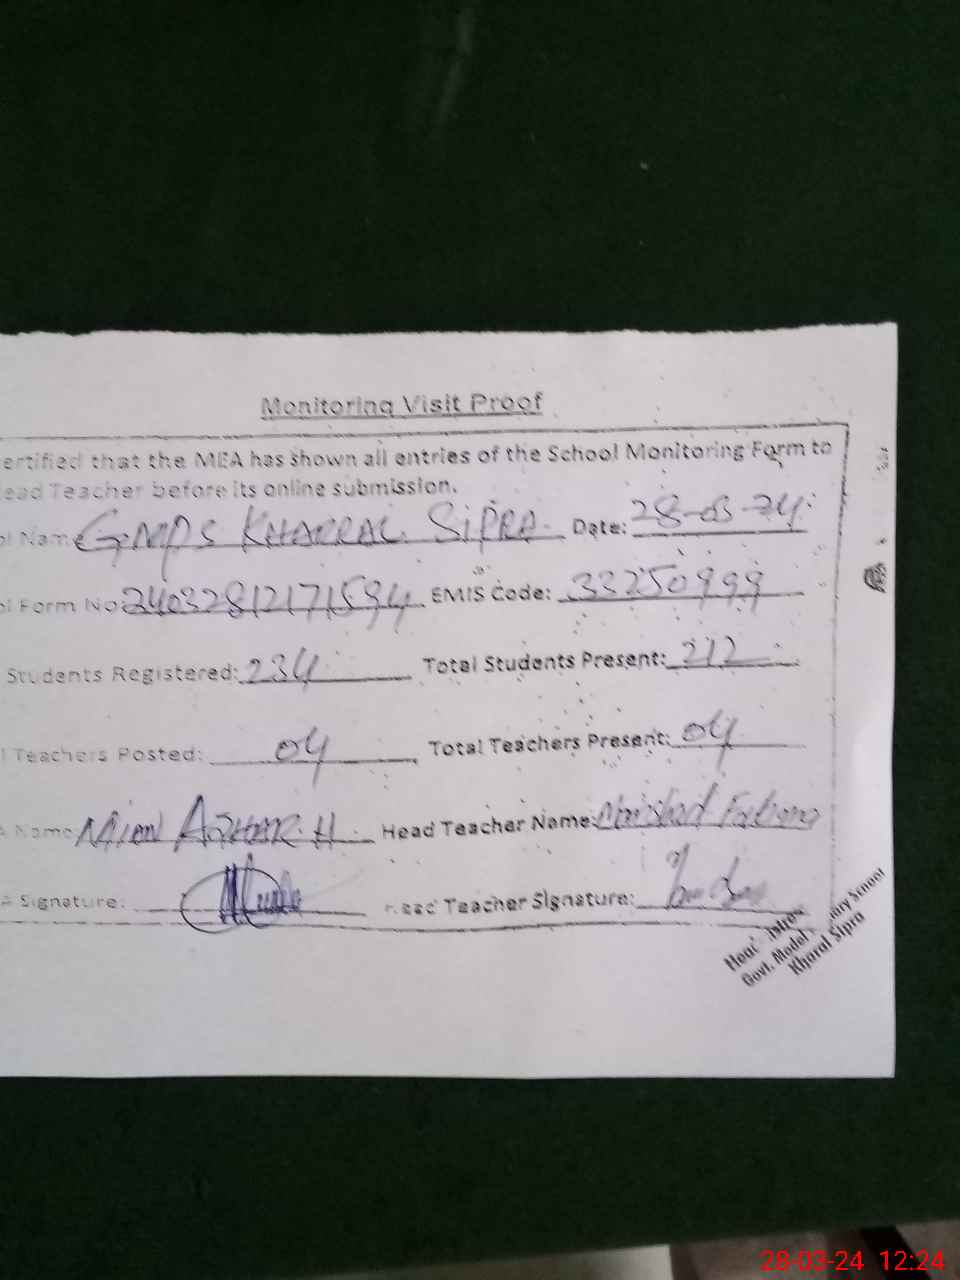 Monitoring Visit Proof
ertified that the MEA has shown all entries of the School Monitoring Form to
ead Teacher before its online submission.
ol Name GMPS KHARRAL SIPRA. Date: 28-03-24
ol Form No 24032812171594 EMIS Code: 33250999
Students Registered: 234 Total Students Present: 212
l Teachers Posted: 04 Total Teachers Present: 04
A Name Mian AZHAR. H. Head Teacher Name: Fatima
A Signature: Head Teacher Signature:
Govt. Model
Kharal Sipra
28-03-24 12:24